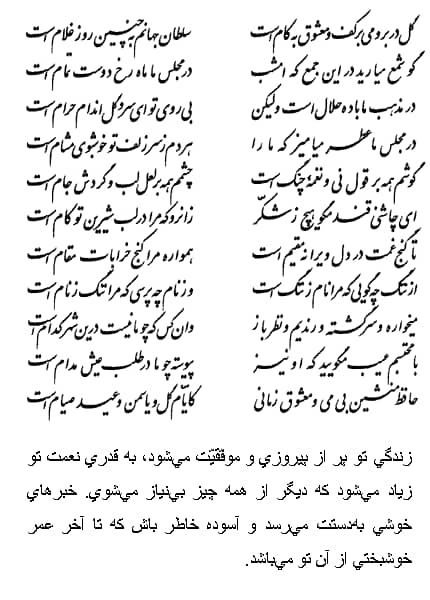 گل در بر و می بر کف و معشوق به کام است سلطان جهانم به چنین روز غلام است
گو شمع میارید در این جمع که امشب در مجلس ما ماه رخ دوست تمام است
در مذهب ما باده حلال است ولیکن بی روی تو ای سرو گل اندام حرام است
در مجلس ما عطر میامیز که ما را هر دم ز سر زلف تو خوشبوی مشام است
گوشم همه بر قول نی و نغمهٔ چنگ است چشمم همه بر لعل لب و گردش جام است
ای چاشنی قند مگو هیچ ز شکّر زانرو که مرا در لب شیرین تو کام است
تا گنج غمت در دل ویرانه مقیم است همواره مرا کنج خرابات مقام است
از ننگ چه گویی که مرا نام ز ننگ است وز نام چه پرسی که مرا ننگ ز نام است
میخواره و سرگشته و رندیم و نظرباز وان کس که چو ما نیست درین شهر کدام است
با محتسبم عیب مگویید که او نیز پیوسته چو ما در طلب عیش مدام است
حافظ منشین بی می و معشوق زمانی کایّام گل و یاسمن و عید صیام است
زندگي تو پر از پيروزي و موفقيّت مي‌شود، به قدري نعمت تو
زياد مي‌شود كه ديگر از همه چيز بي‌نياز مي‌شوي. خبرهاي
خوشي به‌دستت مي‌رسد و آسوده خاطر باش كه تا آخر عمر
خوشبختي از آن تو مي‌باشد.